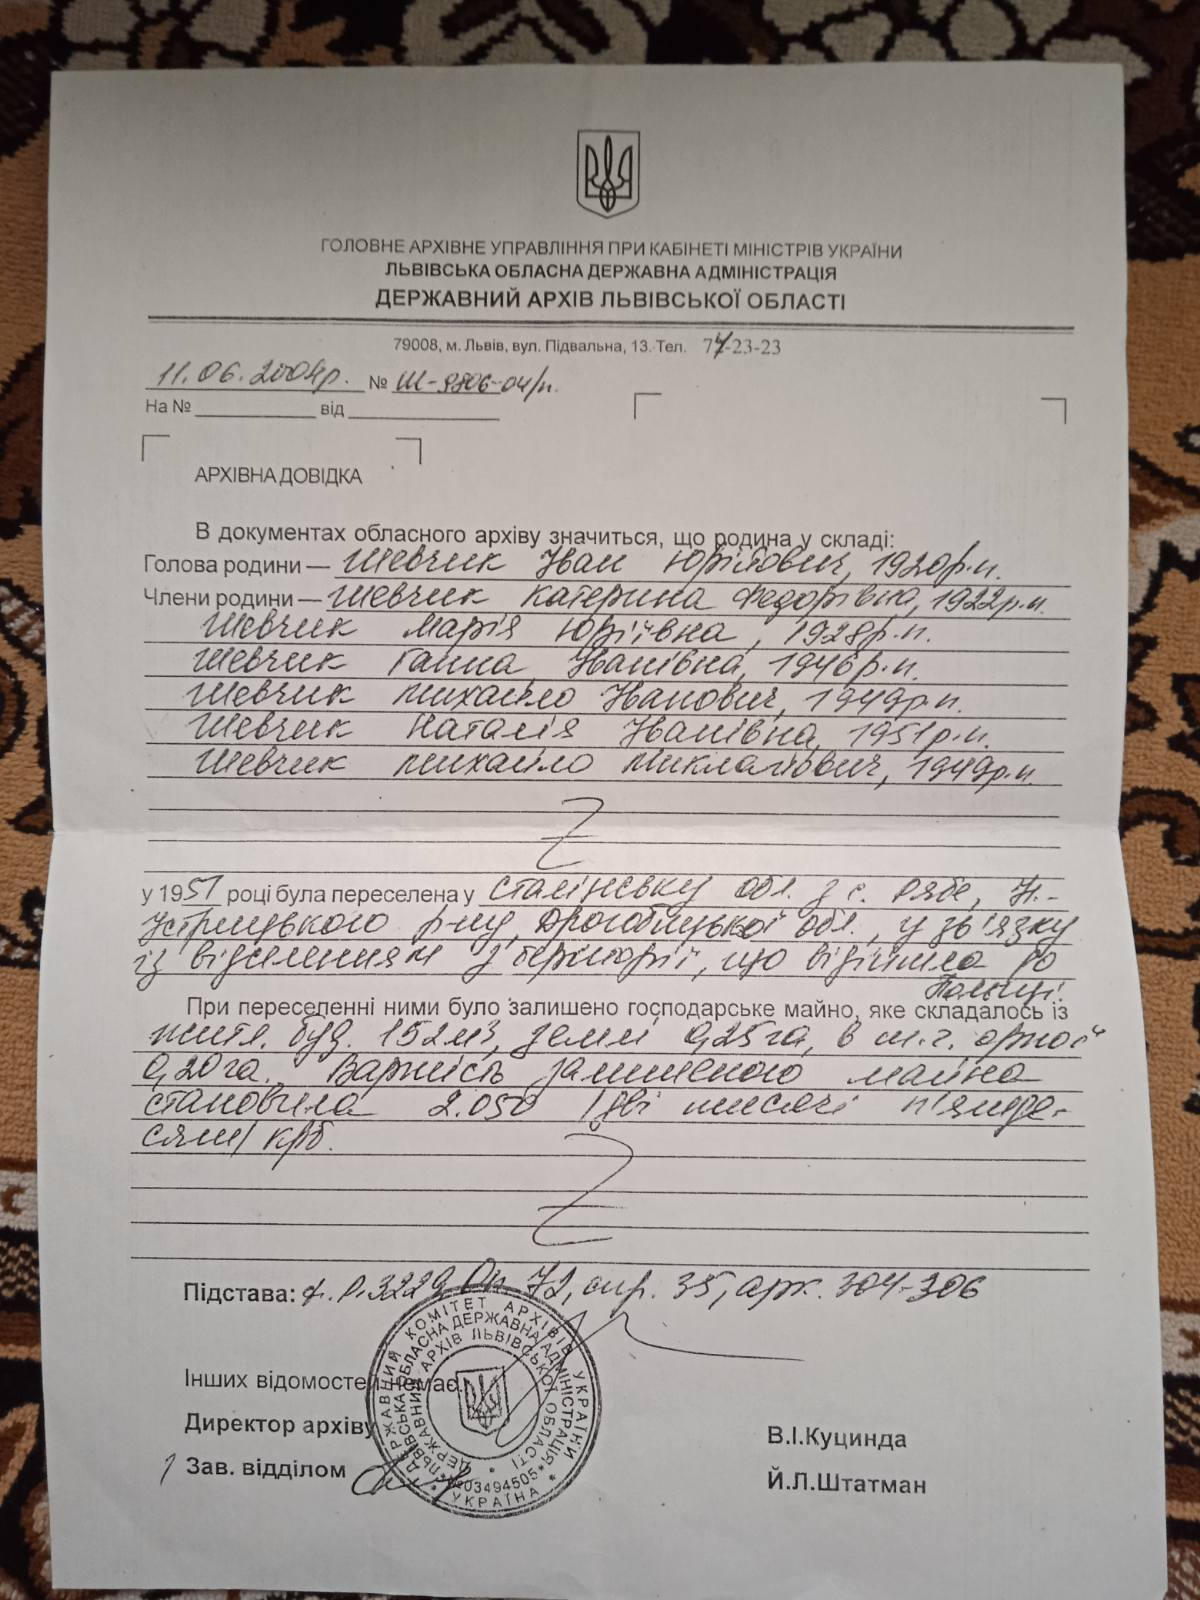 ГОЛОВНЕ АРХІВНЕ УПРАВЛІННЯ ПРИ КАБІНЕТІ МІНІСТРІВ УКРАЇНИ
ЛЬВІВСЬКА ОБЛАСНА ДЕРЖАВНА АДМІНІСТРАЦІЯ
ДЕРЖАВНИЙ АРХІВ ЛЬВІВСЬКОЇ ОБЛАСТІ
79008, м. Львів, вул. Підвальна, 13. Тел. 74-23-23
11.06.2004р. № Ш-9806-04/п.
На № від
АРХІВНА ДОВІДКА
В документах обласного архіву значиться, що родина у складі:
Голова родини — Шевчик Іван Юрійович, 1920р.н.
Члени родини — Шевчик Катерина Федорівна, 1922р.н.
Шевчик Марія Юріївна, 1928р.н.
Шевчик Ганна Іванівна, 1946р.н.
Шевчик Михайло Іванович, 1949р.н.
Шевчик Наталія Іванівна, 1951р.н.
Шевчик Михайло Миколайович, 1949р.н.
у 1951 році була переселена у Сталінську обл. з с. Рябе, Н.-
Устрицького р-ну, Дрогобицької обл., у зв'язку
із відселенням з території, що відійшла до
Польщі.
При переселенні ними було залишено господарське майно, яке складалось із
житл. буд. 152м³, землі 0,25га, в т.ч. орної
0,20га. Вартість залишеного майна
становила 2.050 /дві тисячі п'ятде-
сят/ крб.
Підстава: ф. Р.3229, Оп. 72, спр. 35, арк. 304-306
Інших відомостей немає.
Директор архіву В.І.Куцинда
Зав. відділом Й.Л.Штатман
ДЕРЖАВНИЙ КОМІТЕТ АРХІВІВ УКРАЇНИ
ЛЬВІВСЬКА ОБЛАСНА ДЕРЖАВНА АДМІНІСТРАЦІЯ
ДЕРЖАВНИЙ АРХІВ ЛЬВІВСЬКОЇ ОБЛАСТІ
03494505
УКРАЇНА